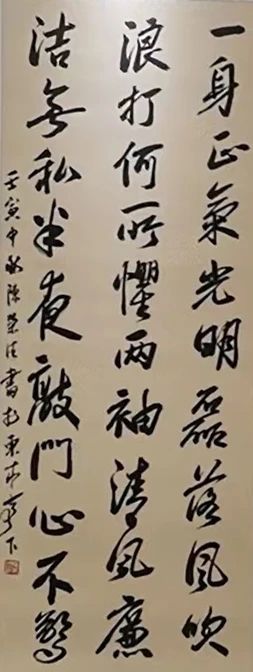 一身正氣光明磊落風吹
浪打何所懼兩袖清風廉
洁無私半夜敲門心不驚
壬寅中秋陳榮法書於東